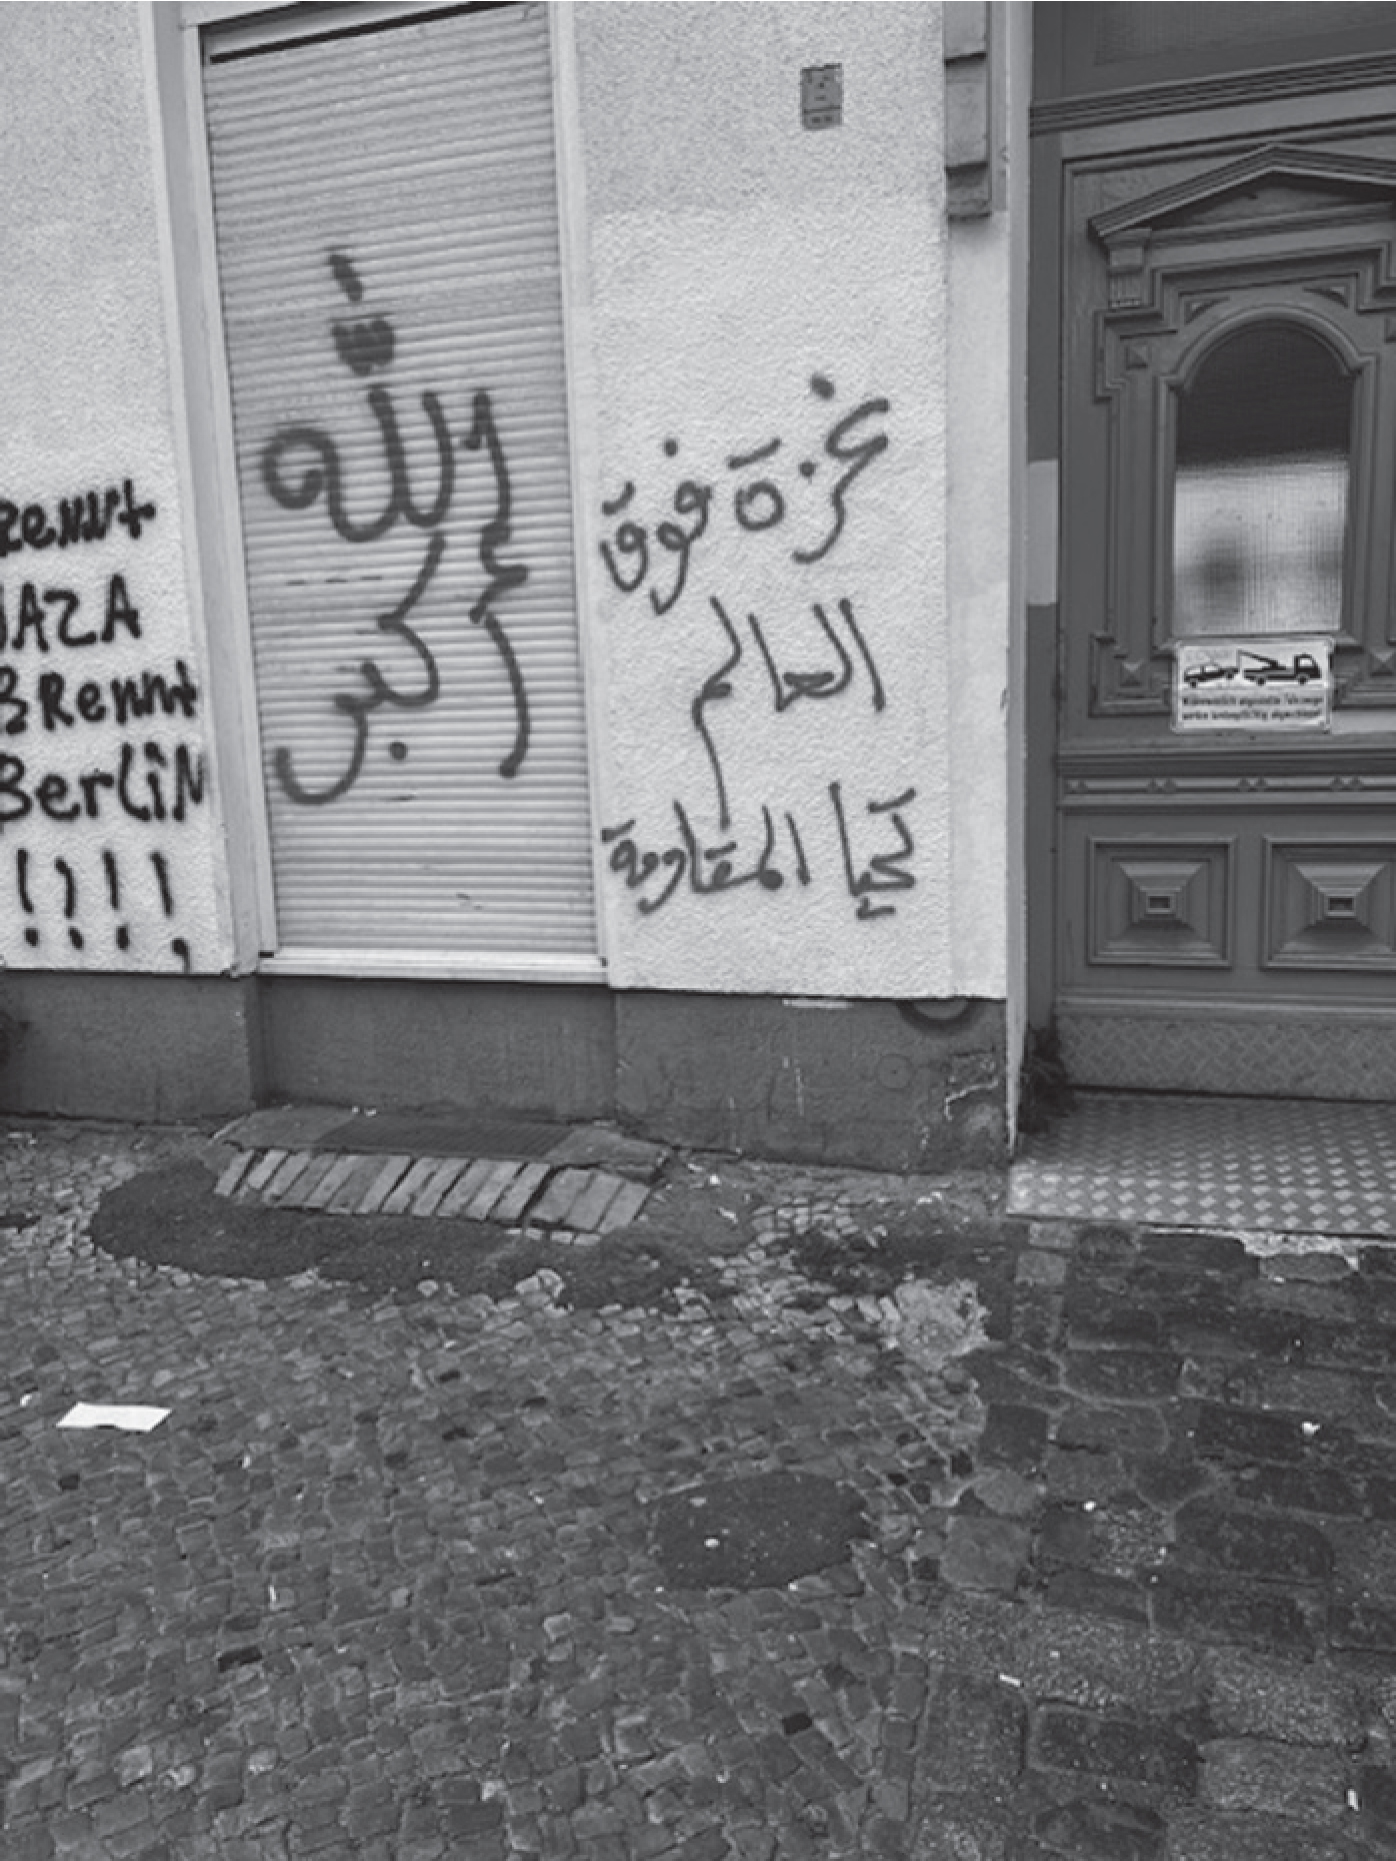 Rennt
AZA
BRennt
BerliN
!?!!,
الله
أكبر
غزة فوق
العالم
تحيا المقاومة